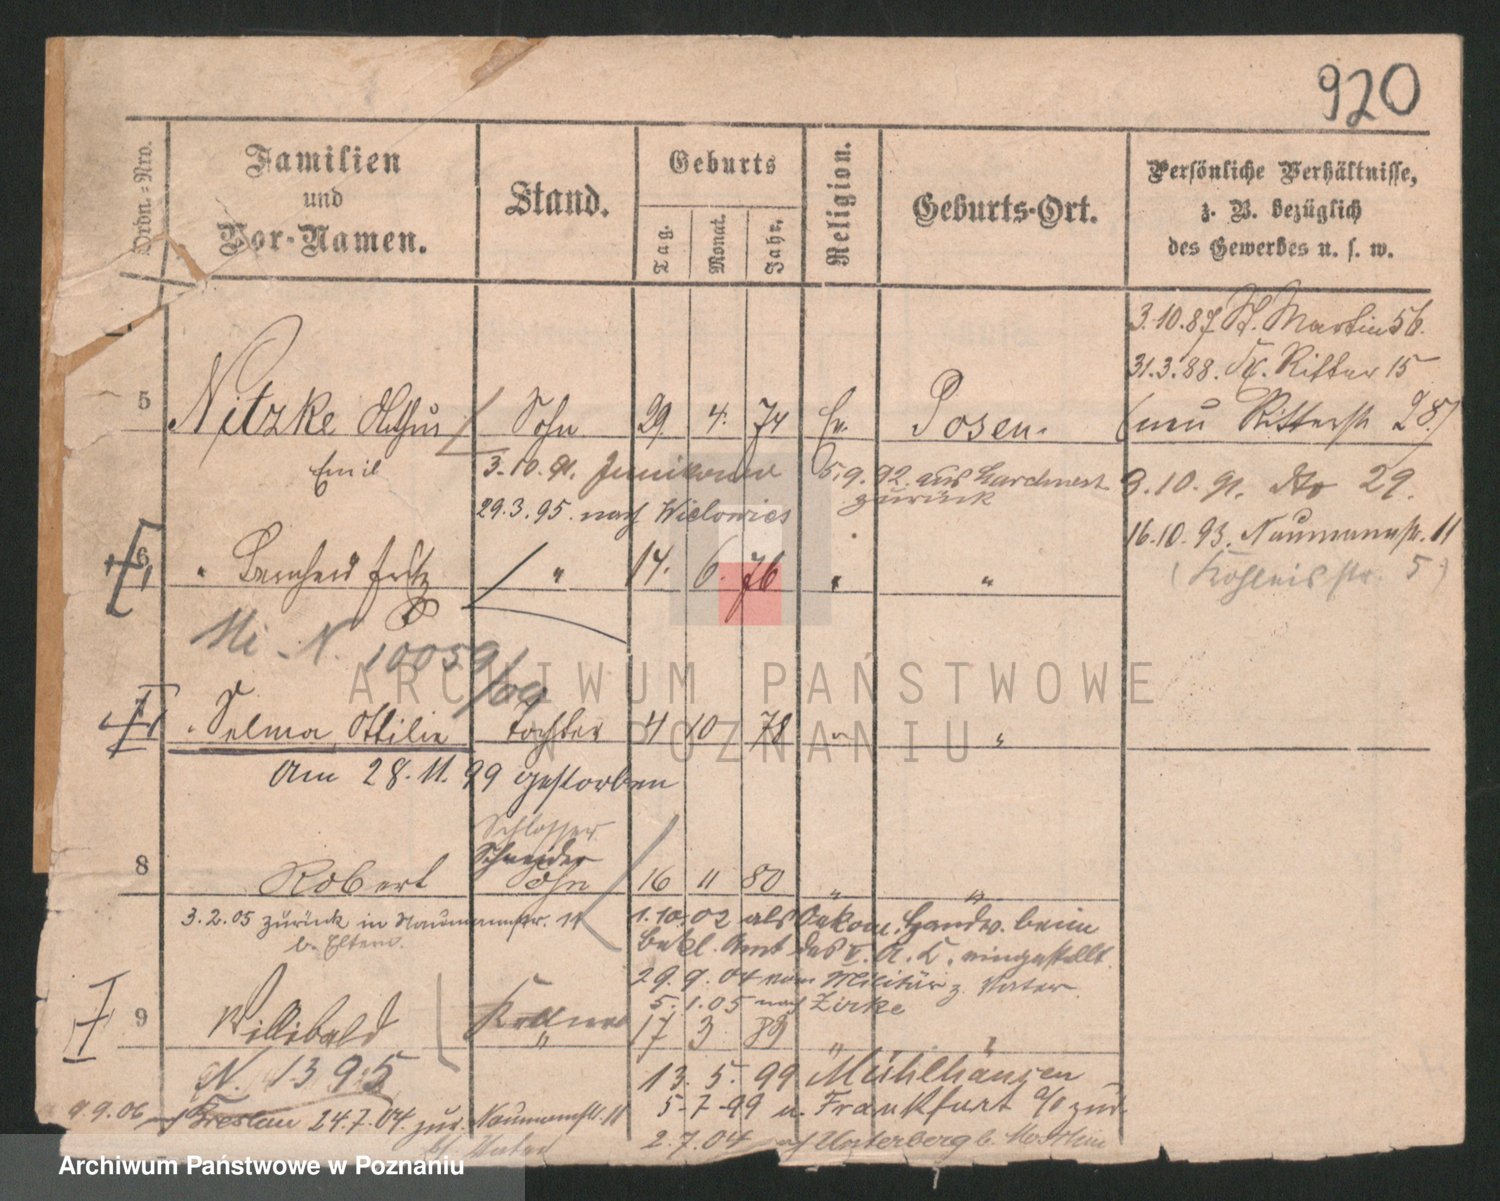 920
Ordn.-Nro.
Familien
und
Vor-Namen.
Stand.
Geburts
Tag.
Monat.
Jahr.
Religion.
Geburts-Ort.
Persönliche Verhältnisse,
z. B. bezüglich
des Gewerbes u. s. w.
3.10.87 St. Martin 56.
31.3.88. Kl. Ritter 15
5 Nitzke Arthur Sohn 29. 4. 74 Ev. Posen. (neu Ritterstr 28)
Emil
3.10.91. Junikowo 5.9.92. aus
zurück 3.10.91. dto 29.
29.3.95. nach 16.10.93. Naumannstr. 11
6 " Bernhard Fritz " 14. 6. 76 " "
(Kohleisstr. 5)
Mi. N. 10059/09
7 " Selma Ottilie Tochter 4 10 78 " "
Am 28.11.99 gestorben
Schlosser
Schneider
8 Robert Sohn 16 11 80 " "
3.2.05 zurück in Naumannstr. 11
b. Eltern.
1.10.02 als Oekon. Handw. beim
Bekl. Amt des V. A. K. eingestellt
29.9.04 vom Militär z. Vater
5.1.05 nach Zirke
Kellner
9 Willibald " 17 3 89 " "
N. 1395
13.5.99 Mühlhausen
5-7-99 n. Frankfurt a/O zur.
9.9.06 Breslau 24.7.04. zur. Naumannstr. 11
2.7.04 Unterberg b. Moschin
ARCHIWUM PAŃSTWOWE
W POZNANIU
Archiwum Państwowe w Poznaniu